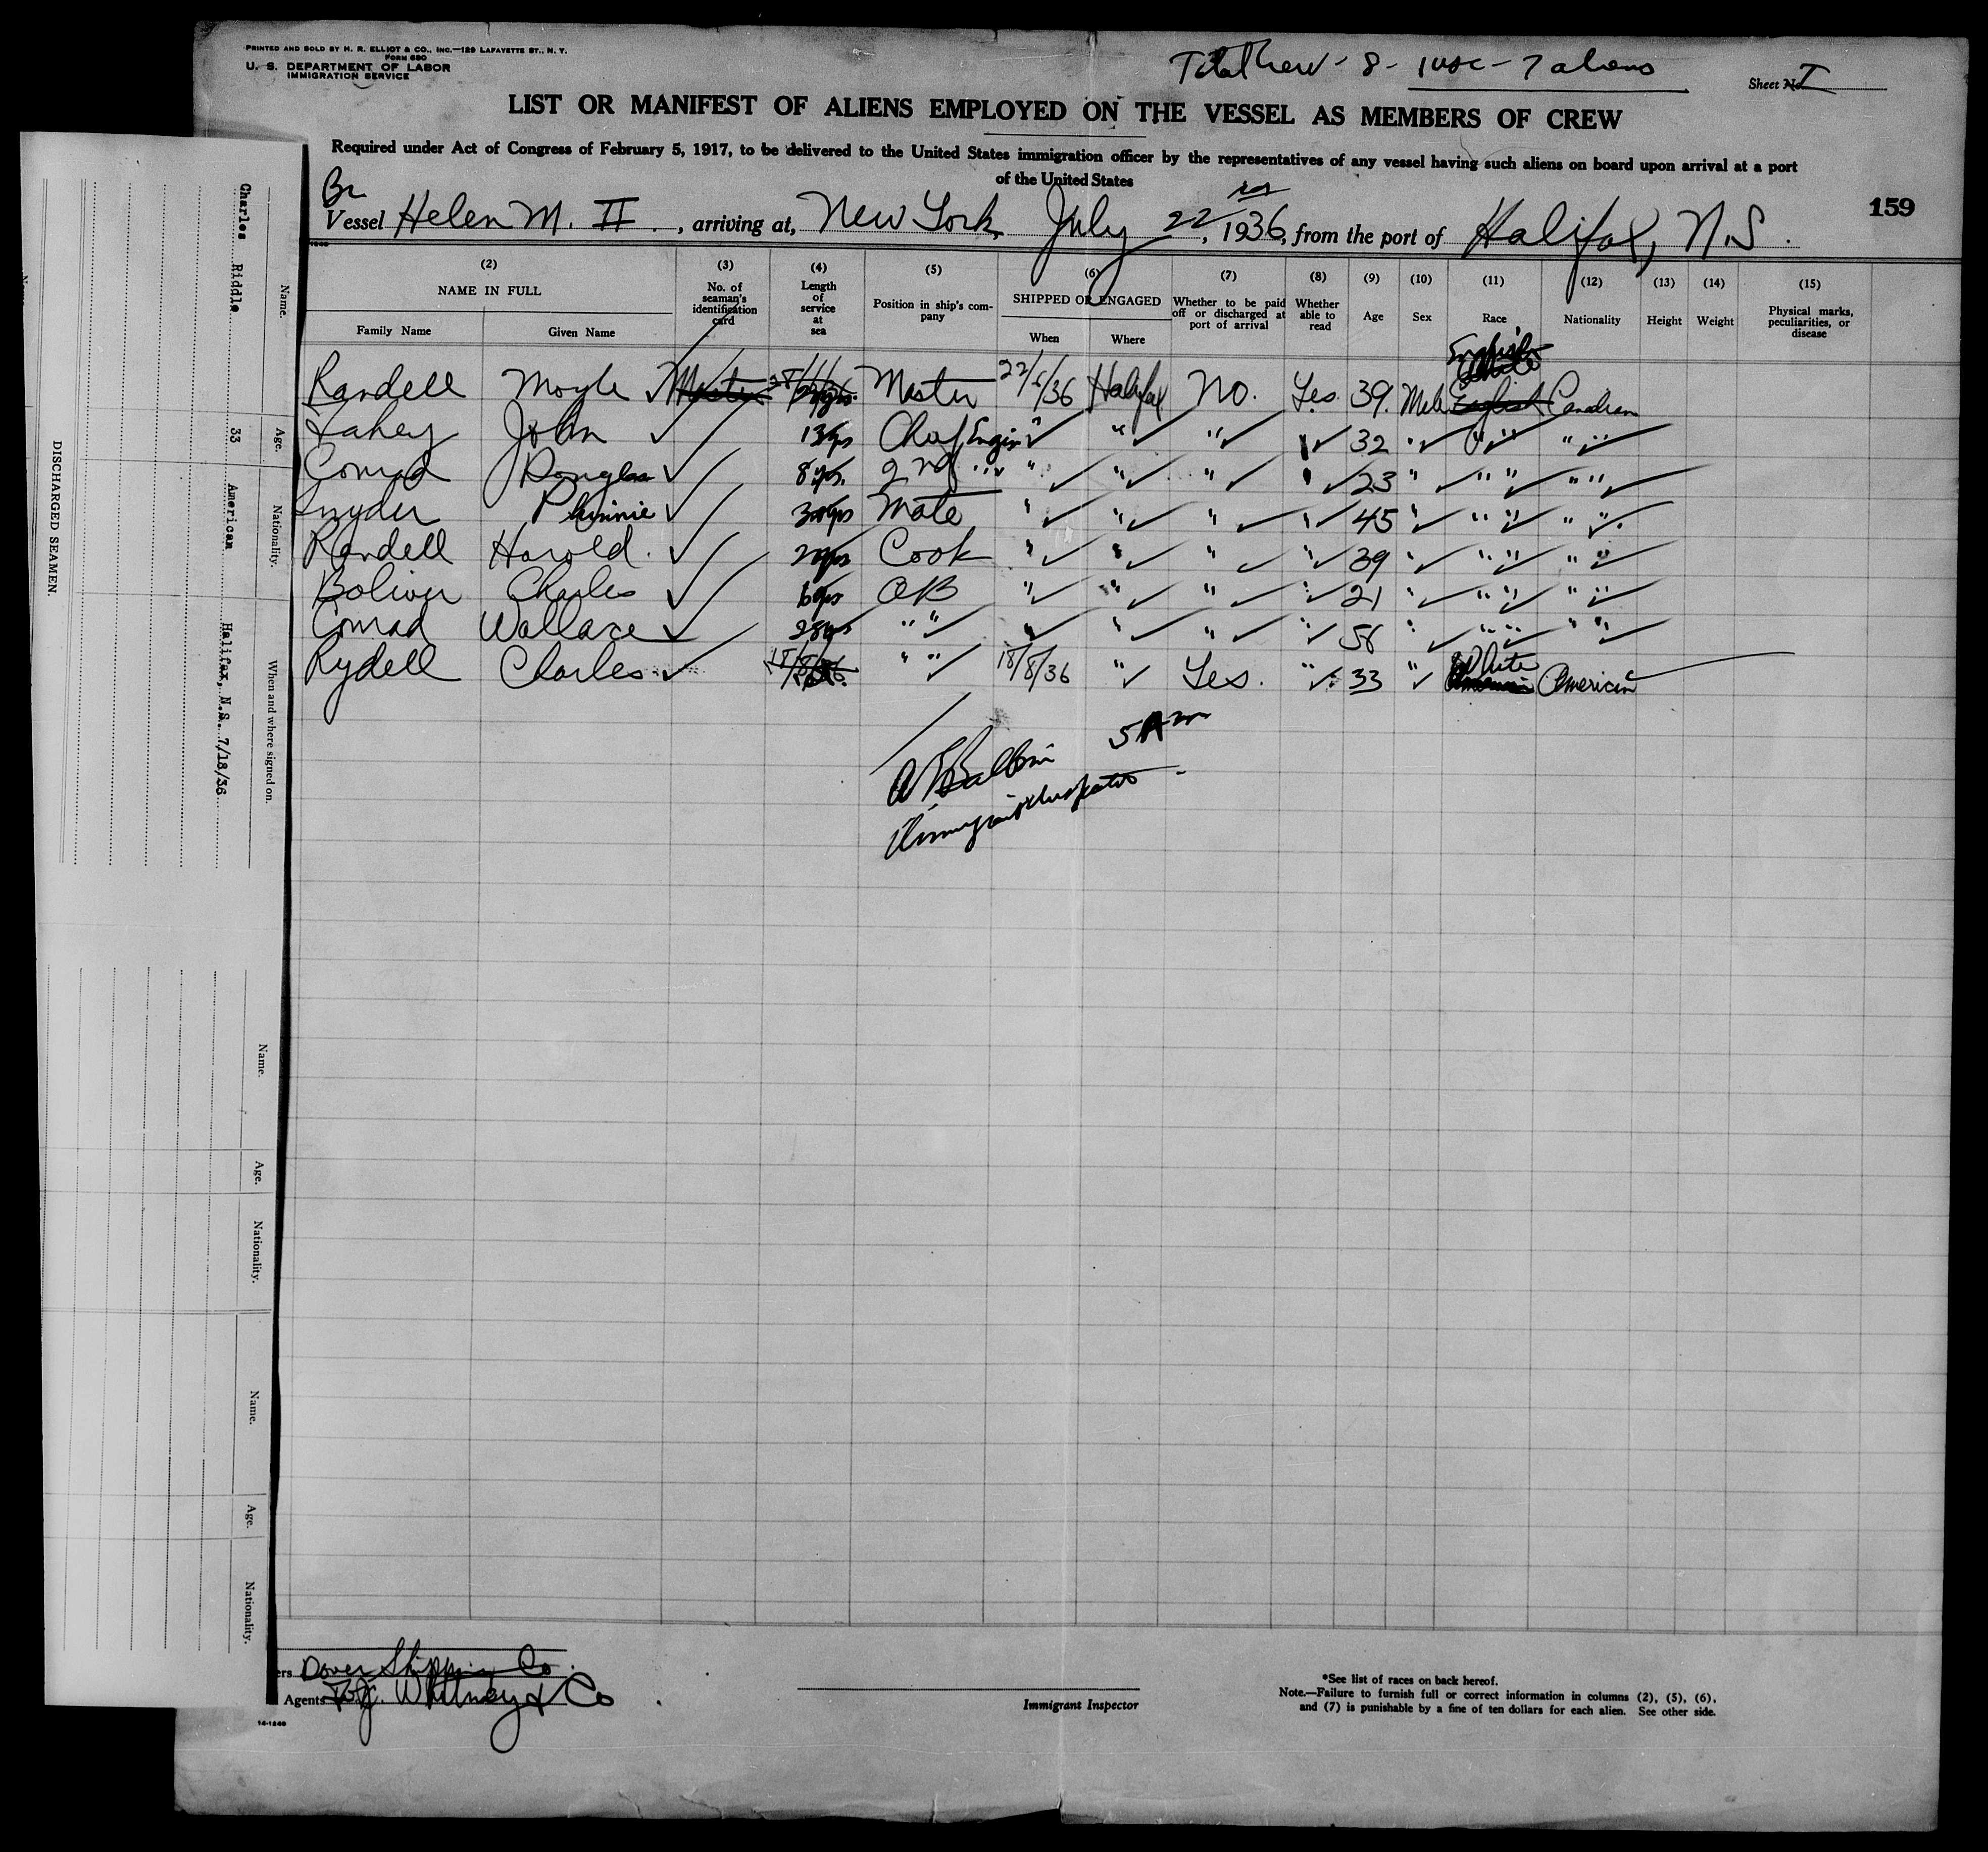 PRINTED AND SOLD BY H. R. ELLIOT & CO., INC.—129 LAFAYETTE ST., N. Y.
FORM 680
U. S. DEPARTMENT OF LABOR
IMMIGRATION SERVICE
Total Crew - 8 - 1 USC - 7 aliens
Sheet No. I
LIST OR MANIFEST OF ALIENS EMPLOYED ON THE VESSEL AS MEMBERS OF CREW
Required under Act of Congress of February 5, 1917, to be delivered to the United States immigration officer by the representatives of any vessel having such aliens on board upon arrival at a port
of the United States
159
Br
Vessel Helen M. II, arriving at, New York July 22, 1936, from the port of Halifax, N.S.
(2) (3) (4) (5) (6) (7) (8) (9) (10) (11) (12) (13) (14) (15)
NAME IN FULL
Family Name Given Name
No. of seaman's identification card
Length of service at sea
Position in ship's company
SHIPPED OR ENGAGED
When Where
Whether to be paid off or discharged at port of arrival
Whether able to read
Age Sex Race Nationality Height Weight
Physical marks, peculiarities, or disease
English
Randell Moyle ✓ Master Master 22/6/36 Halifax No. Yes. 39. Male English Canadian
Lahey John ✓ 13 yrs Chief Engin " ✓ " ✓ " ✓ ✓ 32 " ✓ " " ✓ " " ✓
Conrad Douglas ✓ 8 yrs. 2nd " " ✓ " ✓ " ✓ " ✓ 23 " ✓ " " ✓ " " ✓
Snyder ✓ 30 yrs Mate " ✓ " ✓ " ✓ " ✓ 45 " ✓ " " ✓ " " ✓
Randell Harold. ✓ Cook " ✓ " ✓ " ✓ " ✓ 39 " ✓ " " ✓ " " ✓
Boliver Charles ✓ 6 yrs AB " ✓ " ✓ " ✓ " ✓ 21 " ✓ " " ✓ " " ✓
Conrad Wallace ✓ 28 yrs " " ✓ " ✓ " ✓ " ✓ " ✓ 56 " ✓ " " ✓ " " ✓
Rydell Charles ✓ " " ✓ 18/8/36 " ✓ Yes. " ✓ 33 " ✓ White American
5 AM
Immigrant Inspector
Dover Shipping Co.
Agents Whitney & Co
14-1240
Immigrant Inspector
*See list of races on back hereof.
Note.—Failure to furnish full or correct information in columns (2), (5), (6),
and (7) is punishable by a fine of ten dollars for each alien. See other side.
DISCHARGED SEAMEN.
Name. Age. Nationality. When and where signed on.
Charles Riddle 33 American Halifax, N.S. 7/18/36
Name. Age. Nationality.
Name. Age. Nationality.